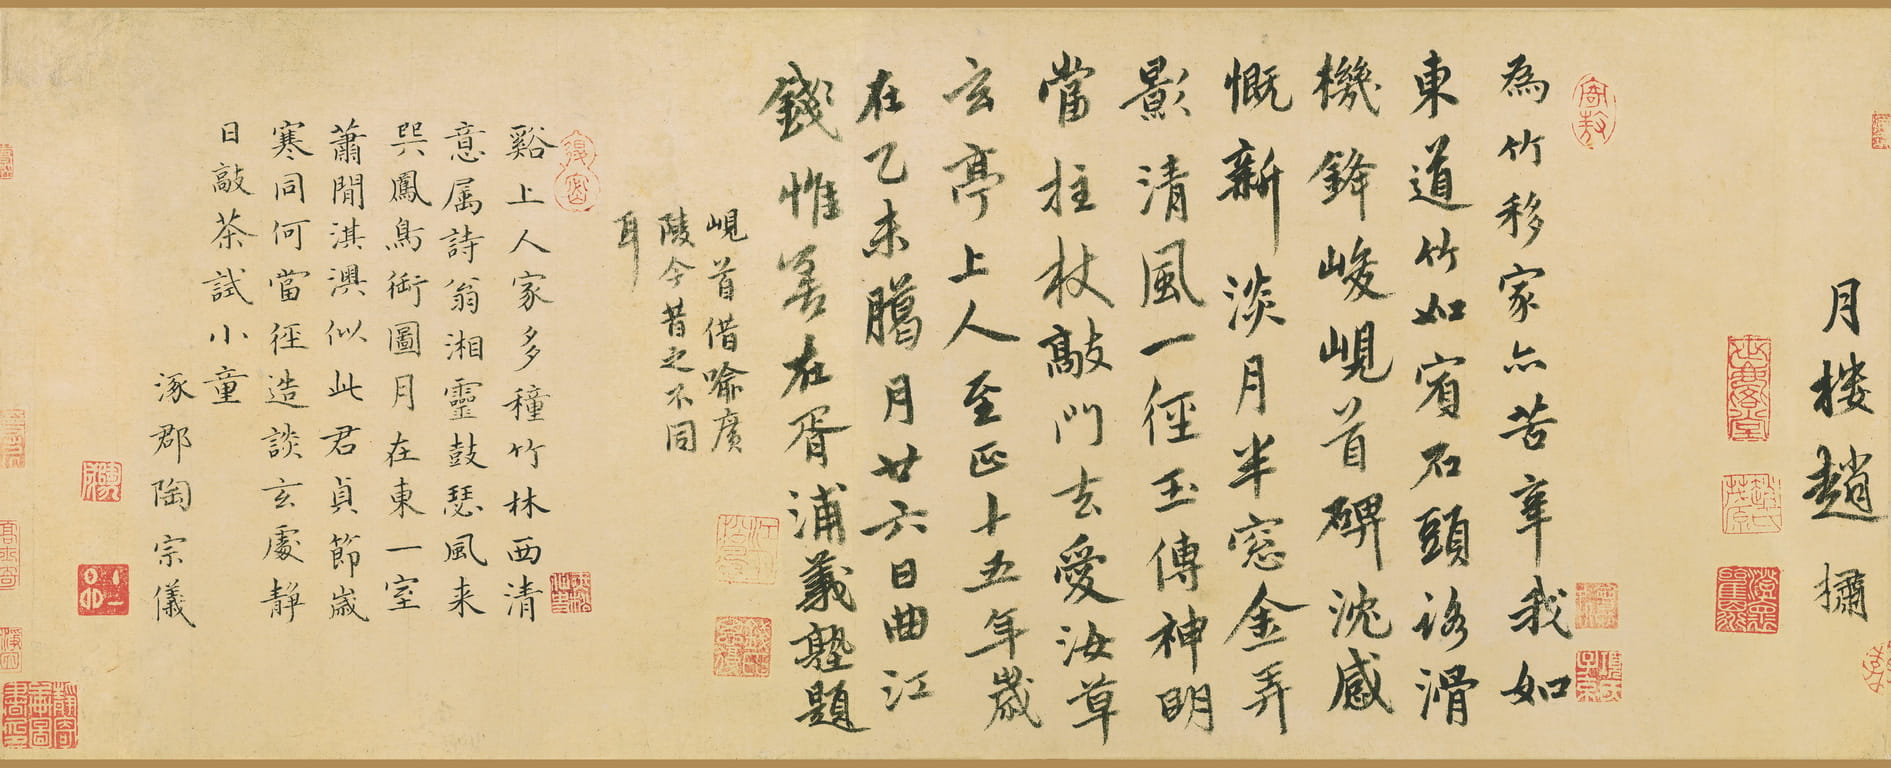 月樓趙橚
為竹移家亦苦辛我如
東道竹如賓石頭路滑
機鋒峻峴首碑沈感
慨新淡月半窓金弄
影清風一徑玉傳神明
當拄杖敲門去愛汝草
玄亭上人至正十五年歲
在乙未臈月廿六日曲江
錢惟善在胥浦義塾題
峴首借喻廣
陵今昔之不同
耳
谿上人家多種竹林西清
意属詩翁湘靈鼓瑟風来
巽鳳鳥銜圖月在東一室
蕭閒淇澳似此君貞節歲
寒同何當徑造談玄處静
日敲茶試小童
涿郡陶宗儀